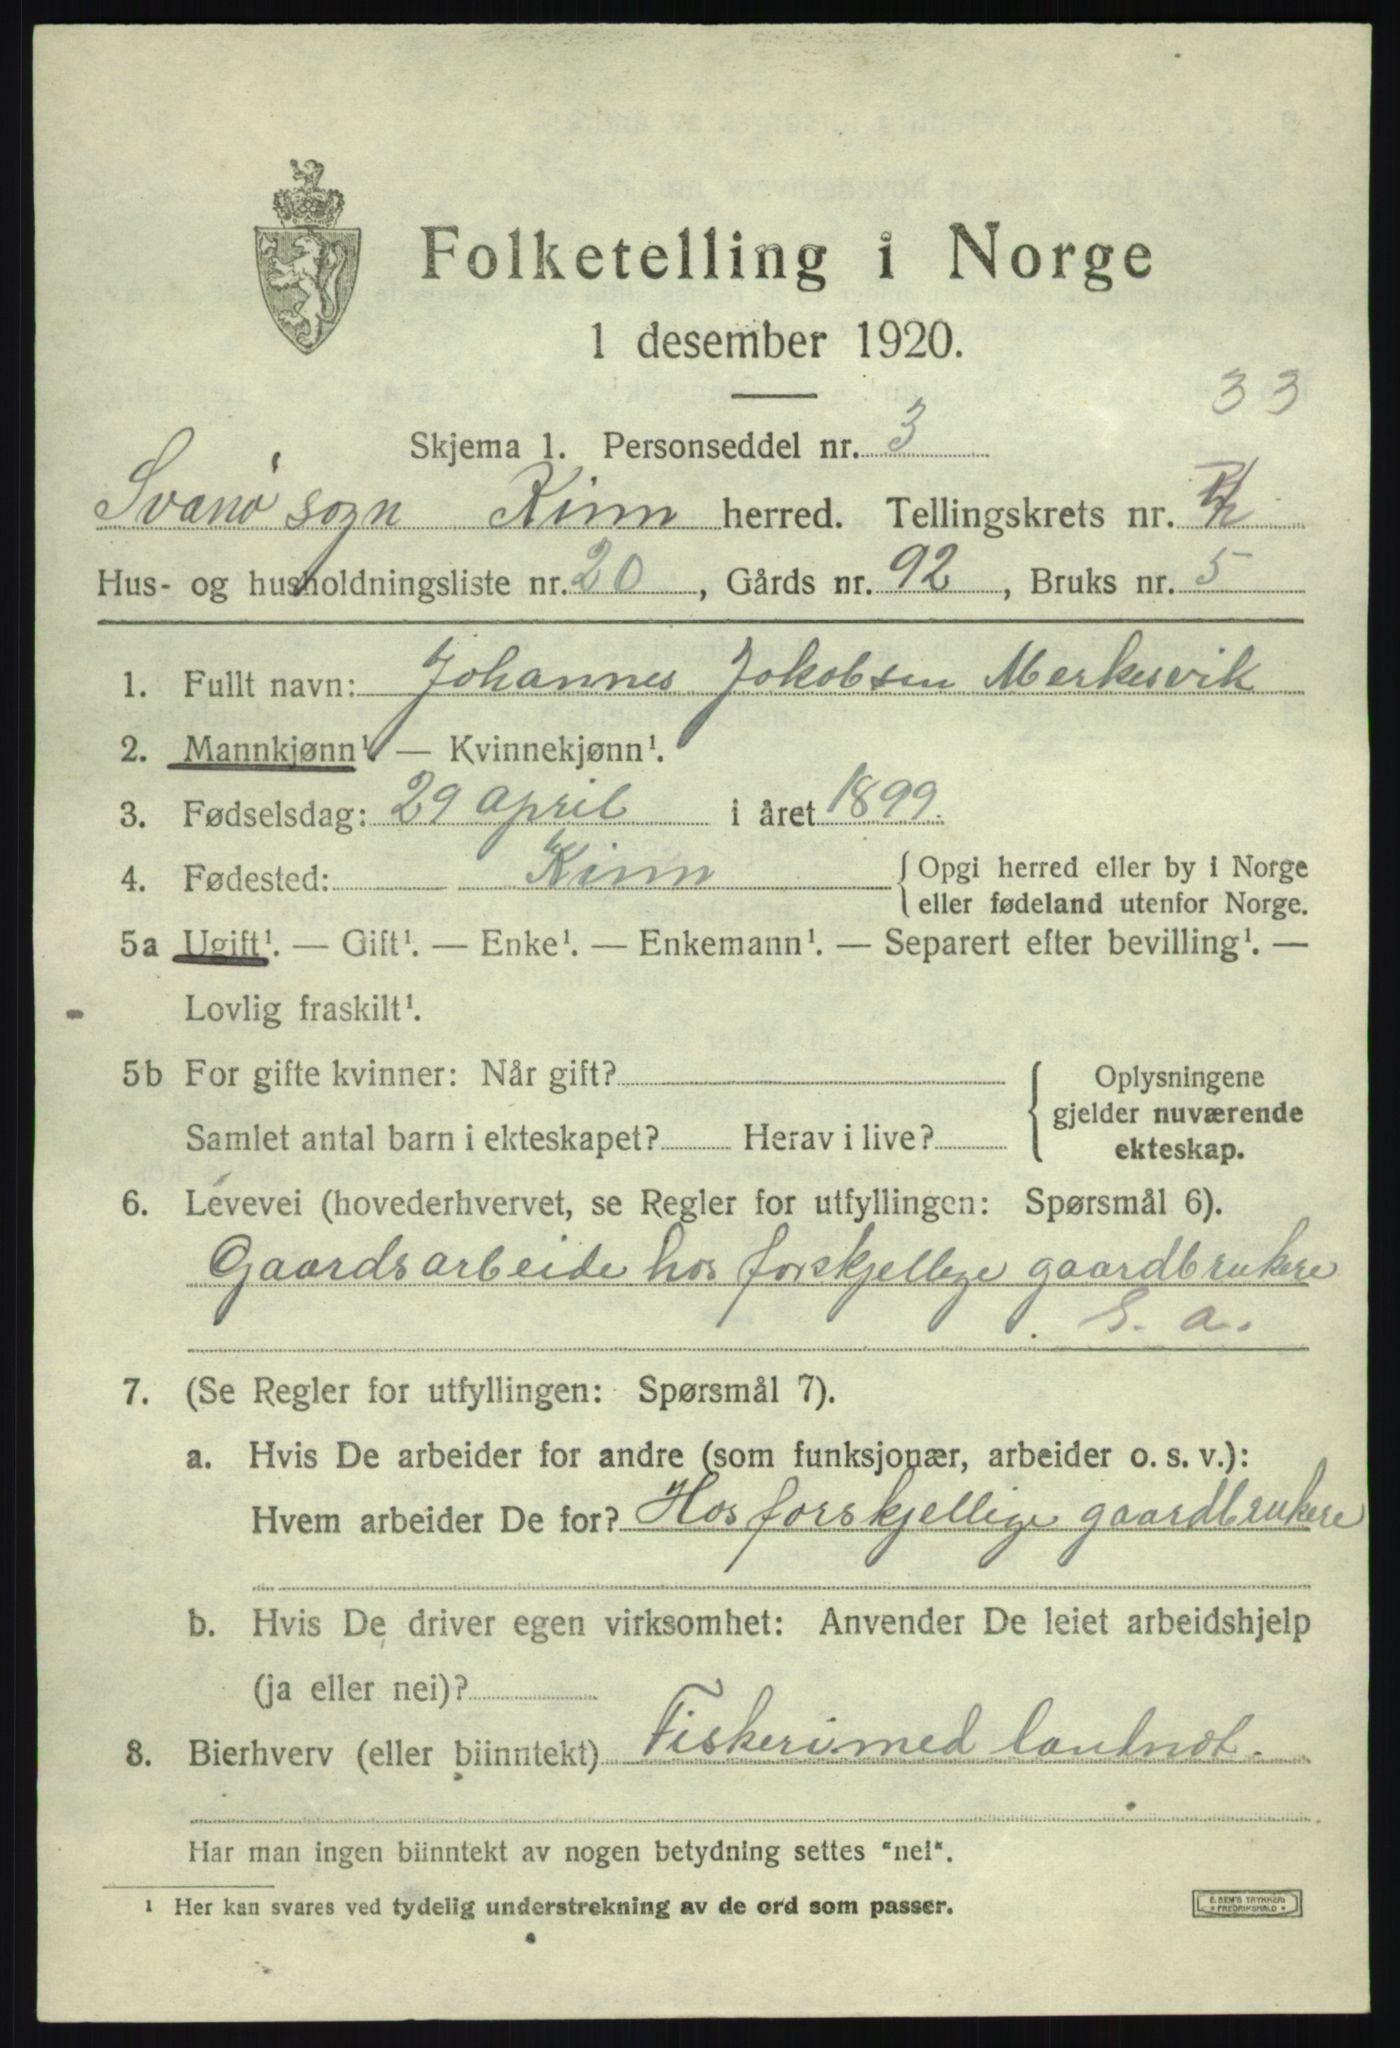 Folketelling i Norge
1 desember 1920.
33
Skjema 1. Personseddel nr. 3
Svanø sogn Kinn herred. Tellingskrets nr.
Hus- og husholdningsliste nr. 20, Gårds nr. 92, Bruks nr. 5
1. Fullt navn: Johannes Jokobsen Merkesvik
2. Mannkjønn¹ — Kvinnekjønn¹.
3. Fødselsdag: 29 april i året 1899.
4. Fødested: Kinn { Opgi herred eller by i Norge
eller fødeland utenfor Norge.
5a Ugift¹. — Gift¹. — Enke¹. — Enkemann¹. — Separert efter bevilling¹. —
Lovlig fraskilt¹.
5b For gifte kvinner: Når gift?
Samlet antal barn i ekteskapet? Herav i live?
{ Oplysningene
gjelder nuværende
ekteskap.
6. Levevei (hovederhvervet, se Regler for utfyllingen: Spørsmål 6).
Gaardsarbeide hos forskjellige gaardbrukere
S. a.
7. (Se Regler for utfyllingen: Spørsmål 7).
a. Hvis De arbeider for andre (som funksjonær, arbeider o. s. v.):
Hvem arbeider De for? Hos forskjellige gaardbrukere
b. Hvis De driver egen virksomhet: Anvender De leiet arbeidshjelp
(ja eller nei)?
8. Bierhverv (eller biinntekt) Fiskeri med
Har man ingen biinntekt av nogen betydning settes "nei".
¹ Her kan svares ved tydelig understrekning av de ord som passer.
E. SEM'S TRYKKERI
FREDRIKSHALD